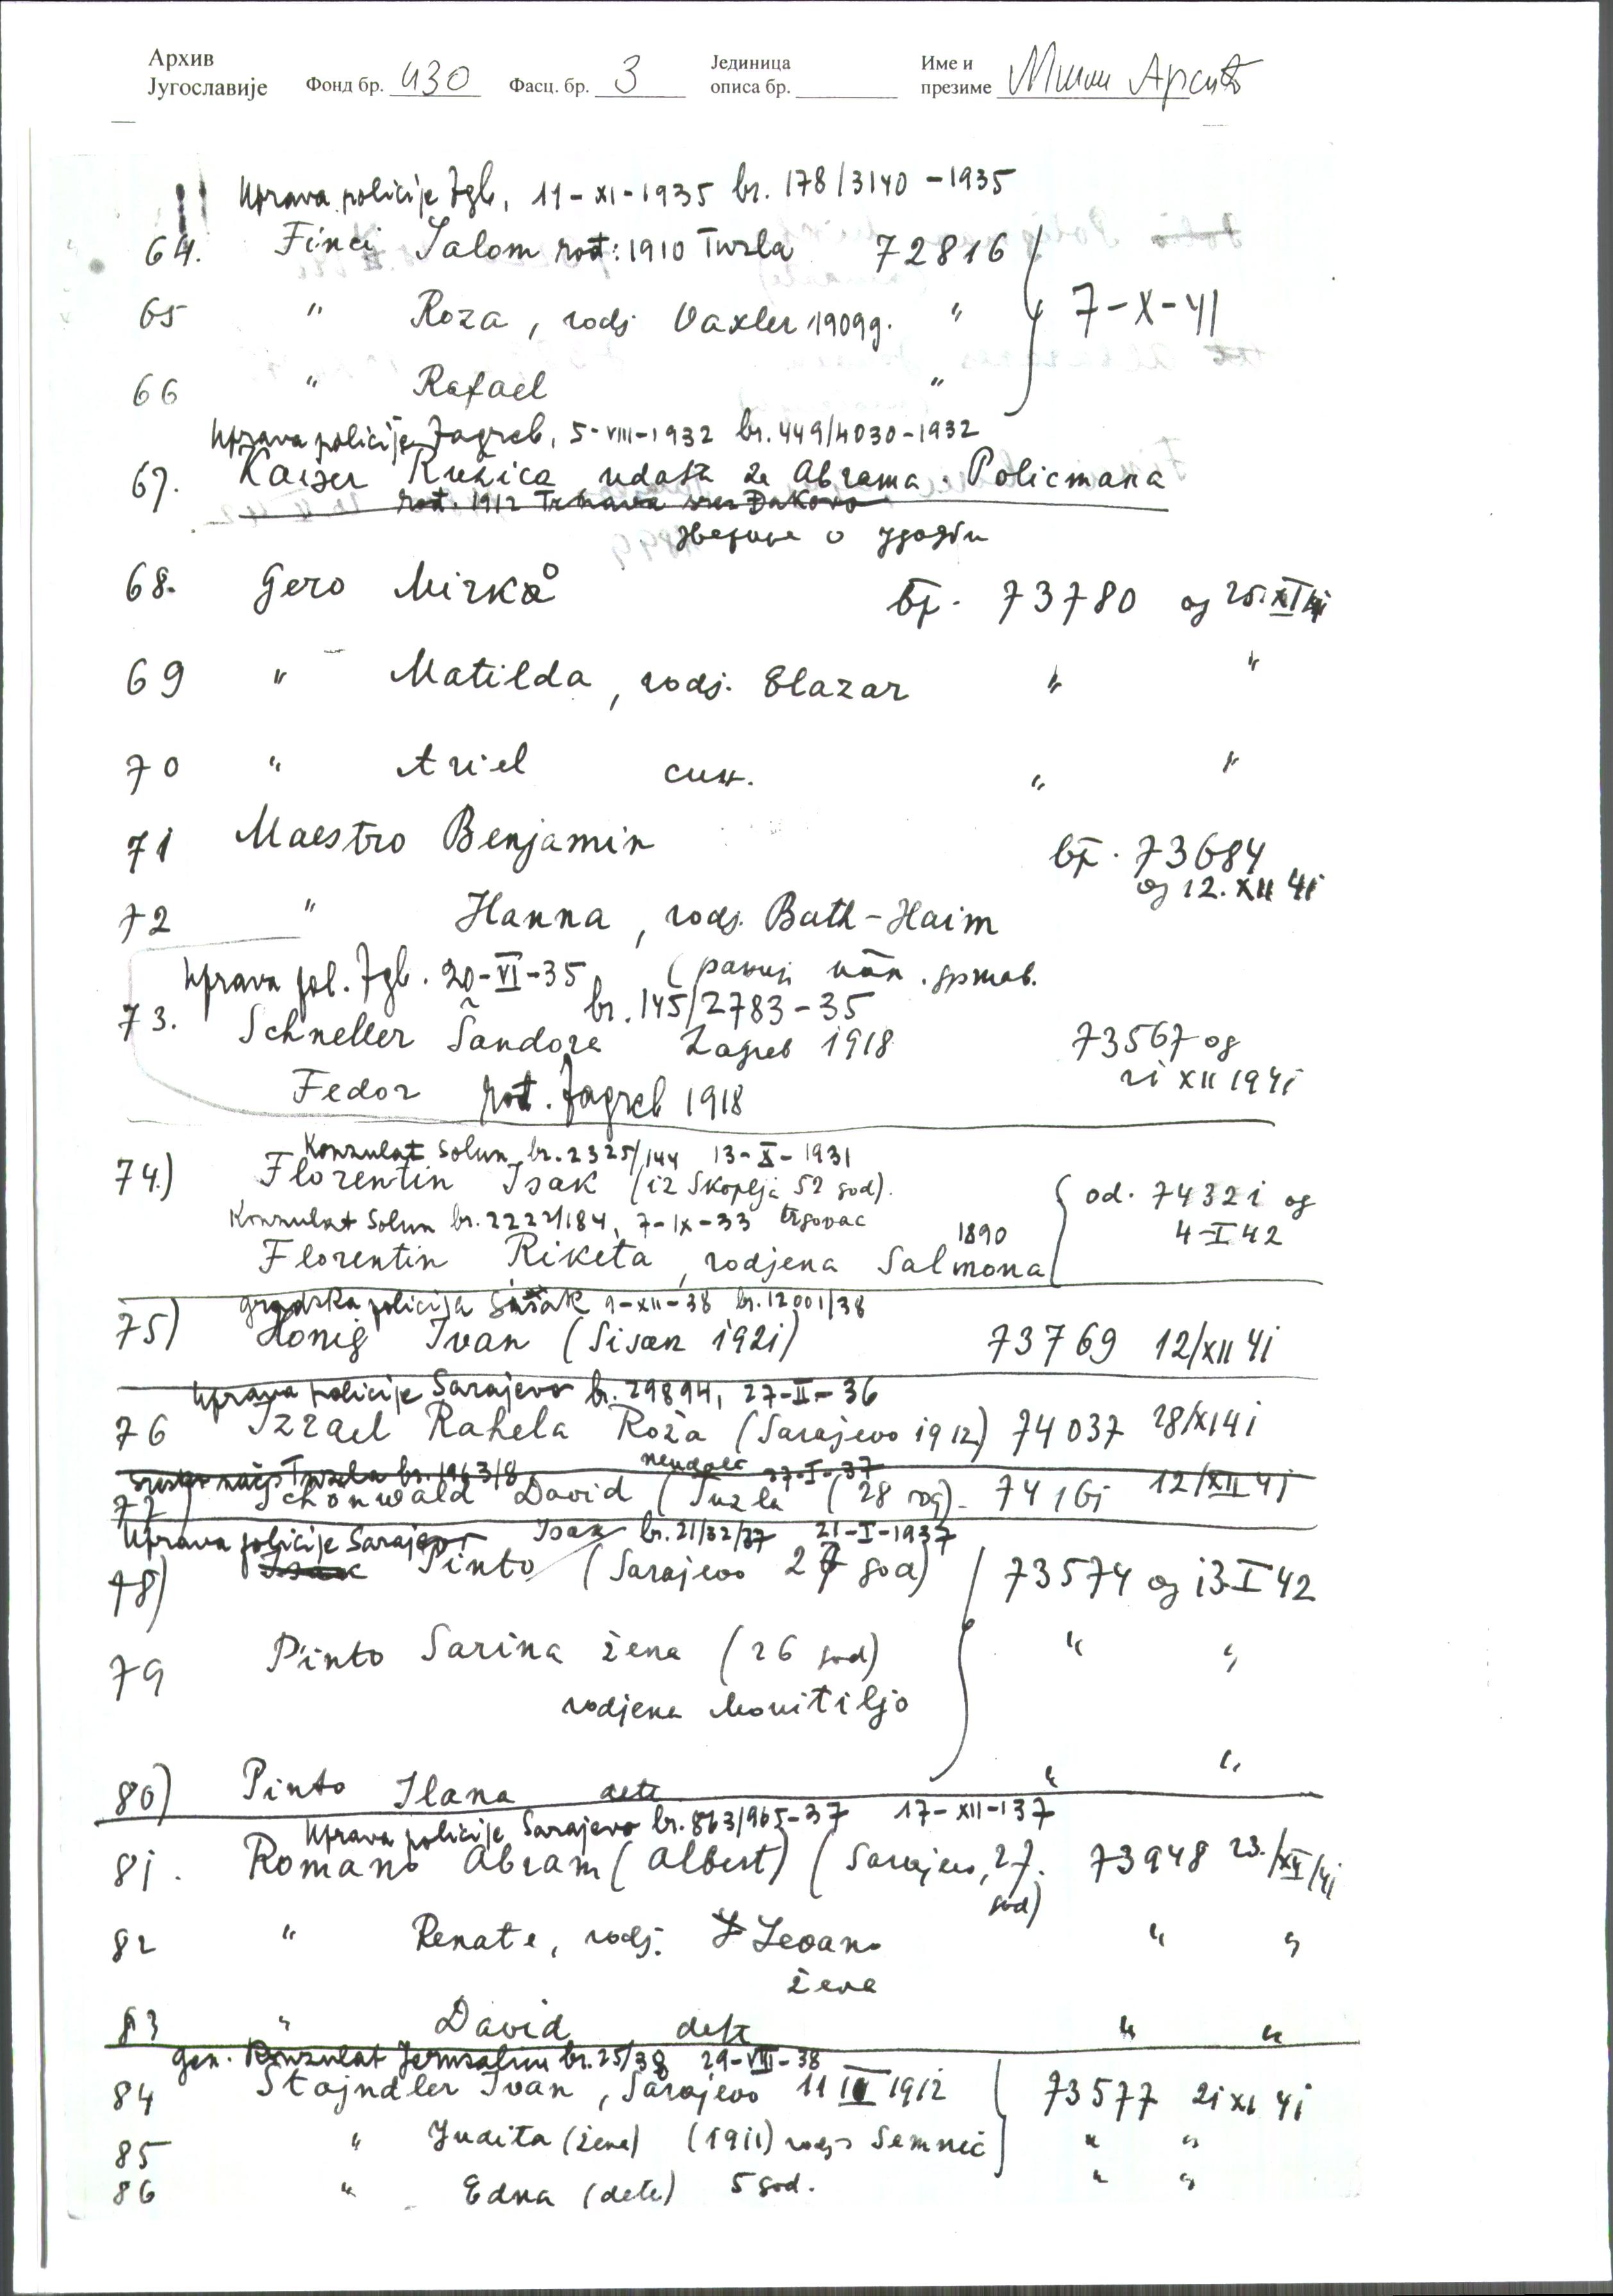 Архив
Југославије Фонд бр. 430 Фасц. бр. 3 Јединица описа бр. Име и презиме
Uprava policije Zgb, 11-XI-1935 br. 178/3140-1935
64. Finci Salom rođ: 1910 Tuzla 72816
65 " Roza, rodj Vaxler 1909g. " 7-X-41
66 " Rafael "
Uprava policije Zagreb, 5-VIII-1932 br. 449/4030-1932
67. Kaiser Ružica udata za Abrama Policmana
rođ. 1912 Trnava srez Đakovo
68. Gero Mirko бр. 73780 од 25.XI 41
69 " Matilda, rodj. Elazar " "
70 " Ariel син. " "
71 Maestro Benjamin бр. 73684
од 12.XII 41
72 " Hanna, rodj. Bath-Haim
Uprava pol. Zgb. 20-VI-35
br. 145/2783-35
73. Schneller Šandora Zagreb 1918 73567 од
21 XII 1941
Fedor rođ. Zagreb 1918
Konzulat Solun br. 2325/144 13-X-1931
74.) Florentin Isak (iz Skoplja 52 god). od. 74321 од
Konzulat Solun br. 2222/184, 7-IX-33 trgovac 4-I 42
1890
Florentin Riketa, rodjena Salmona
gradska policija Sušak 9-XII-38 br. 12001/38
75) Honig Ivan (Sisak 1921) 73769 12/XII 41
Uprava policije Sarajevo br. 29894, 27-II-36
76 Izrael Rahela Roža (Sarajevo 1912) 74037 28/XI 41
Tuzla br. 1963/8 27-I-37
77) Schönwald David (Tuzla (28 god). 74161 12/XII 41
Uprava policije Sarajevo Isak br. 21/32/37 21-I-1937
78) Isak Pinto (Sarajevo 27 god) 73574 од 13.I 42
79 Pinto Sarina žena (26 god) " "
rodjena Montiljo
80) Pinto Ilana dete " "
Uprava policije Sarajevo br. 863/965-37 17-XII-137
81. Romano Abram (Albert) (Sarajevo, 27. god) 73948 23./XII/41
82 " Renate, rodj. Levan " "
žena
83 " David, dete " "
Gen. Konzulat Jerusalim br. 25/38 29-VIII-38
84 Štajndler Ivan, Sarajevo 11 III 1912 73577 21 XI 41
85 " Judita (žena) (1911) rodj. Semnic " "
86 " Edna (dete) 5 god. " "